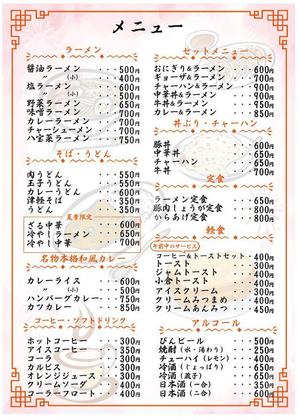 メニュー
ラーメン
醤油ラーメン 500円
〃 (小) 400円
塩ラーメン 600円
〃 (小) 500円
野菜ラーメン 700円
味噌ラーメン 700円
カレーラーメン 700円
チャーシューメン 700円
八宝菜ラーメン 750円
そば・うどん
肉うどん 550円
玉子うどん 550円
カレーうどん 550円
津軽そば 350円
うどん 350円
夏季限定
ざる中華 600円
冷やしラーメン 650円
冷やし中華 650円
名物本格和風カレー
カレーライス 600円
〃 (小) 500円
ハンバーグカレー 750円
カツカレー 850円
コーヒー・ソフトドリンク
ホットコーヒー 300円
アイスコーヒー 350円
コーラ 350円
カルピス 300円
オレンジジュース 300円
クリームソーダ 400円
コーラーフロート 400円
セットメニュー
おにぎり&ラーメン 600円
ギョーザ&ラーメン 700円
チャーハン&ラーメン 900円
中華丼&ラーメン 900円
牛丼&ラーメン 900円
カレー&ラーメン 850円
丼ぶり・チャーハン
豚丼 600円
中華丼 700円
チャーハン 650円
牛丼 700円
定食
ラーメン定食 650円
豚肉しょうが定食 800円
からあげ定食 750円
軽食
午前中のサービス
コーヒー&トーストセット 400円
トースト
ジャムトースト
小倉トースト 400円
アイスクリーム 300円
クリームみつまめ
クリームあんみつ
アルコール
びんビール 500円
焼酎(水・湯わり) 250円
チューハイ(レモン) 400円
冷酒(じょっぱり)
冷酒
日本酒(一合)
日本酒(二合)